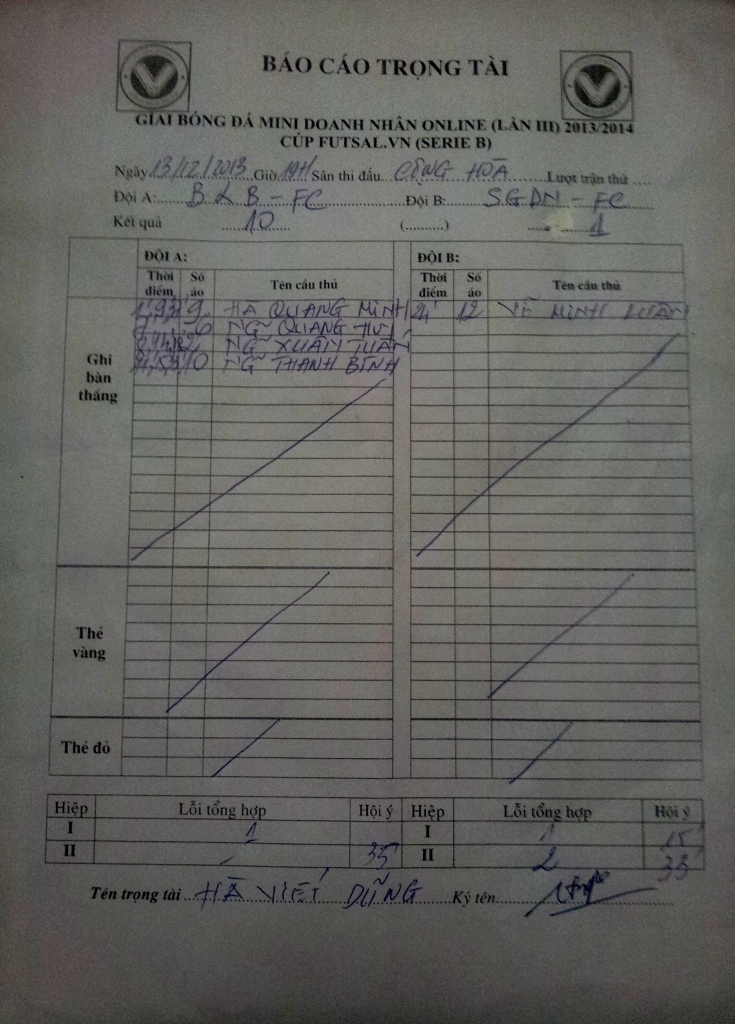 BÁO CÁO TRỌNG TÀI
GIẢI BÓNG ĐÁ MINI DOANH NHÂN ONLINE (LẦN III) 2013/2014
CÚP FUTSAL.VN (SERIE B)
Ngày 13/12/2013 Giờ 19H Sân thi đấu CỘNG HÒA Lượt trận thứ ....
Đội A: B & B - FC Đội B: SGDN - FC
Kết quả 10 (..........) 1
ĐỘI A: ĐỘI B:
Thời điểm Số áo Tên cầu thủ Thời điểm Số áo Tên cầu thủ
Ghi bàn thắng
9 HÀ QUANG MINH 24' 12 VÕ MINH
6 NG~ QUANG
2 NG~ XUÂN TUẤN
10 NG~ THANH BÌNH
Thẻ vàng
Thẻ đỏ
Hiệp Lỗi tổng hợp Hội ý Hiệp Lỗi tổng hợp Hội ý
I 1 I 1 15'
II 35' II 2 33'
Tên trọng tài HÀ VIẾT DŨNG Ký tên